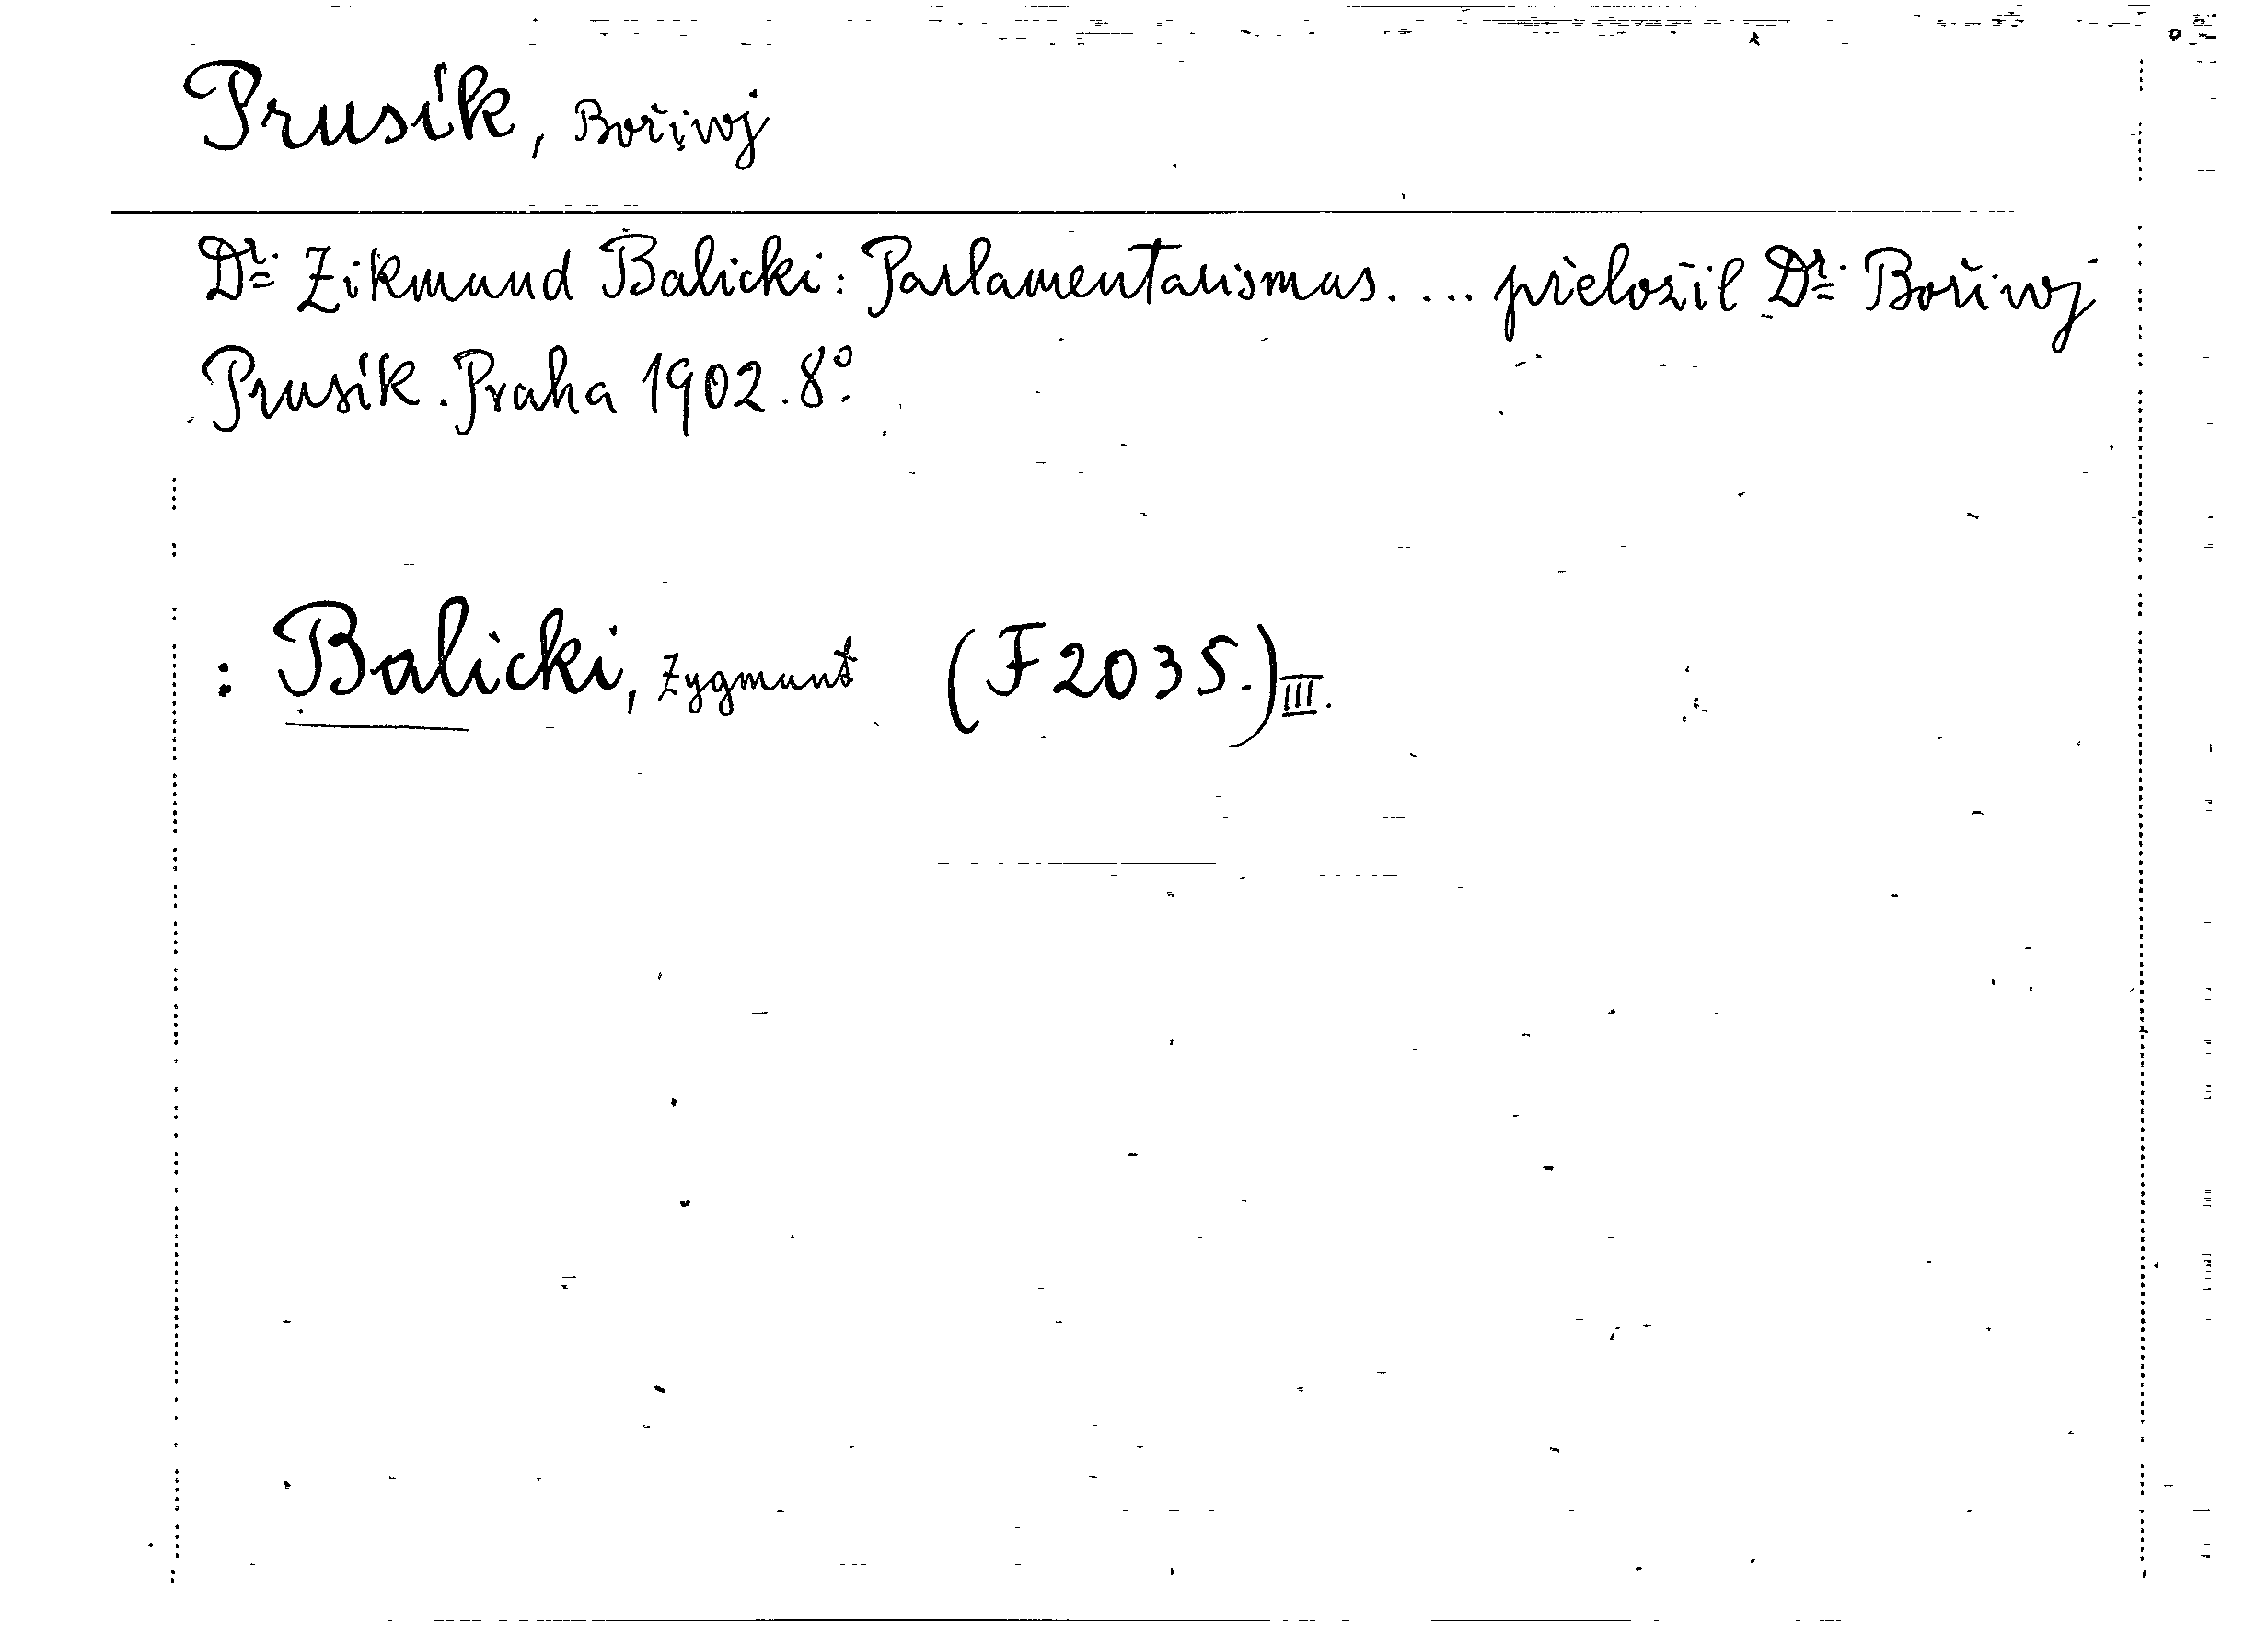 Prusík, Bořivoj
Dr. Zikmund Balicki: Parlamentarismus.... přeložil Dr. Bořivoj
Prusík. Praha 1902. 8°.
: Balicki, Zygmunt (F 2035.) III.